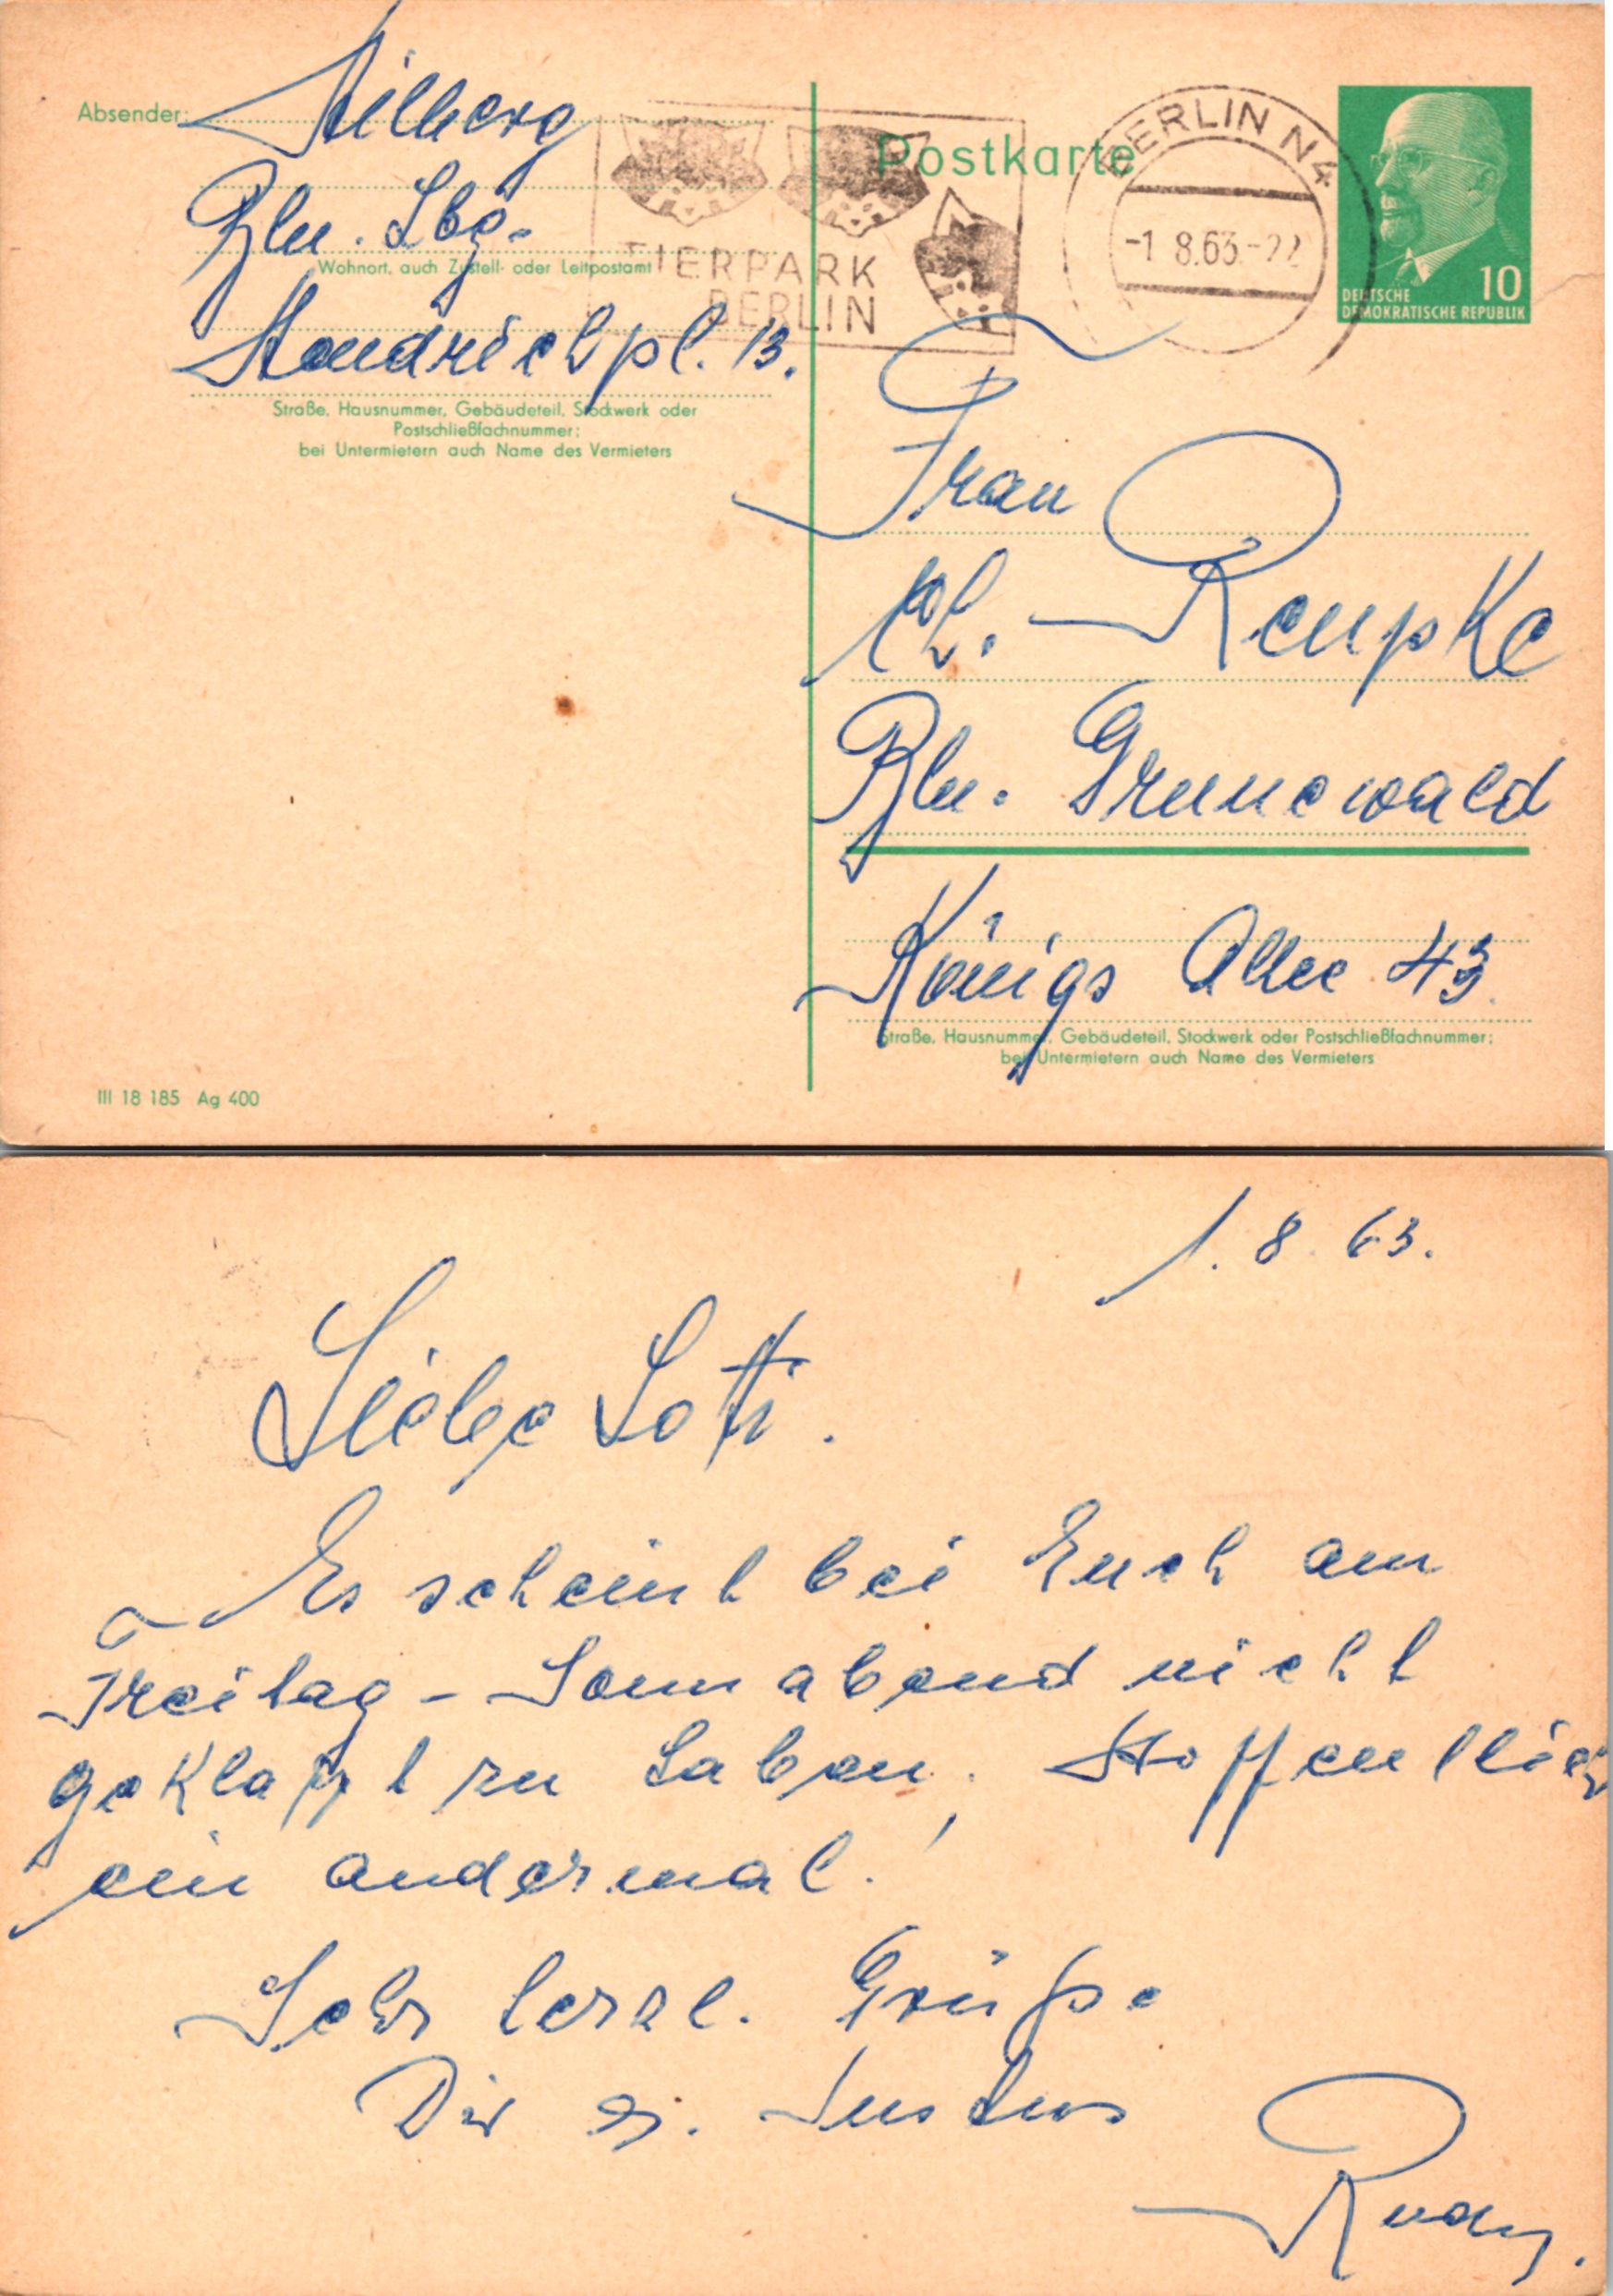 Absender:
Bln. Lbg.
Wohnort, auch Zustell- oder Leitpostamt
pl. 13.
Straße, Hausnummer, Gebäudeteil, Stockwerk oder
Postschließfachnummer;
bei Untermietern auch Name des Vermieters
III 18 185 Ag 400
TIERPARK
BERLIN
Postkarte
BERLIN N4
-1.8.63.-22
10
DEUTSCHE
DEMOKRATISCHE REPUBLIK
Frau
Ch. Reupke
Bln. Grunewald
Königs Allee 43.
Straße, Hausnummer, Gebäudeteil, Stockwerk oder Postschließfachnummer;
bei Untermietern auch Name des Vermieters
1. 8. 63.
Liebe Lotti.
Es scheint bei Euch am
Freitag - Sonnabend nicht
geklappt zu haben. Hoffentlich
ein andermal.!
Sehr herzl. Grüße
Dir
Rudy.